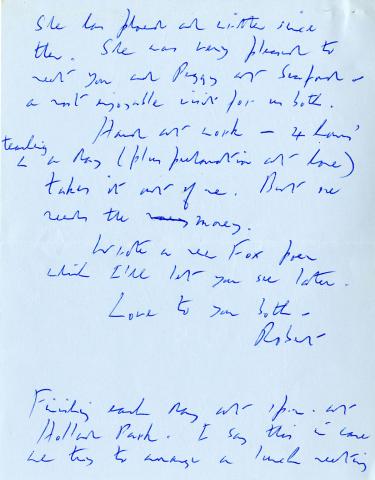 She has phoned and written since
then. She was very pleased to
meet you and Peggy at Seaford –
a most enjoyable visit for us both.
Hard at work – 4 hours'
teaching
a day (plus preparation at home)
takes it out of me. But one
needs the money.
Wrote a new Fox poem
which I'll let you see later.
Love to you both –
Robert
Finishing each day at 1 p.m. at
Holland Park. I say this in case
we try to arrange a lunch meeting